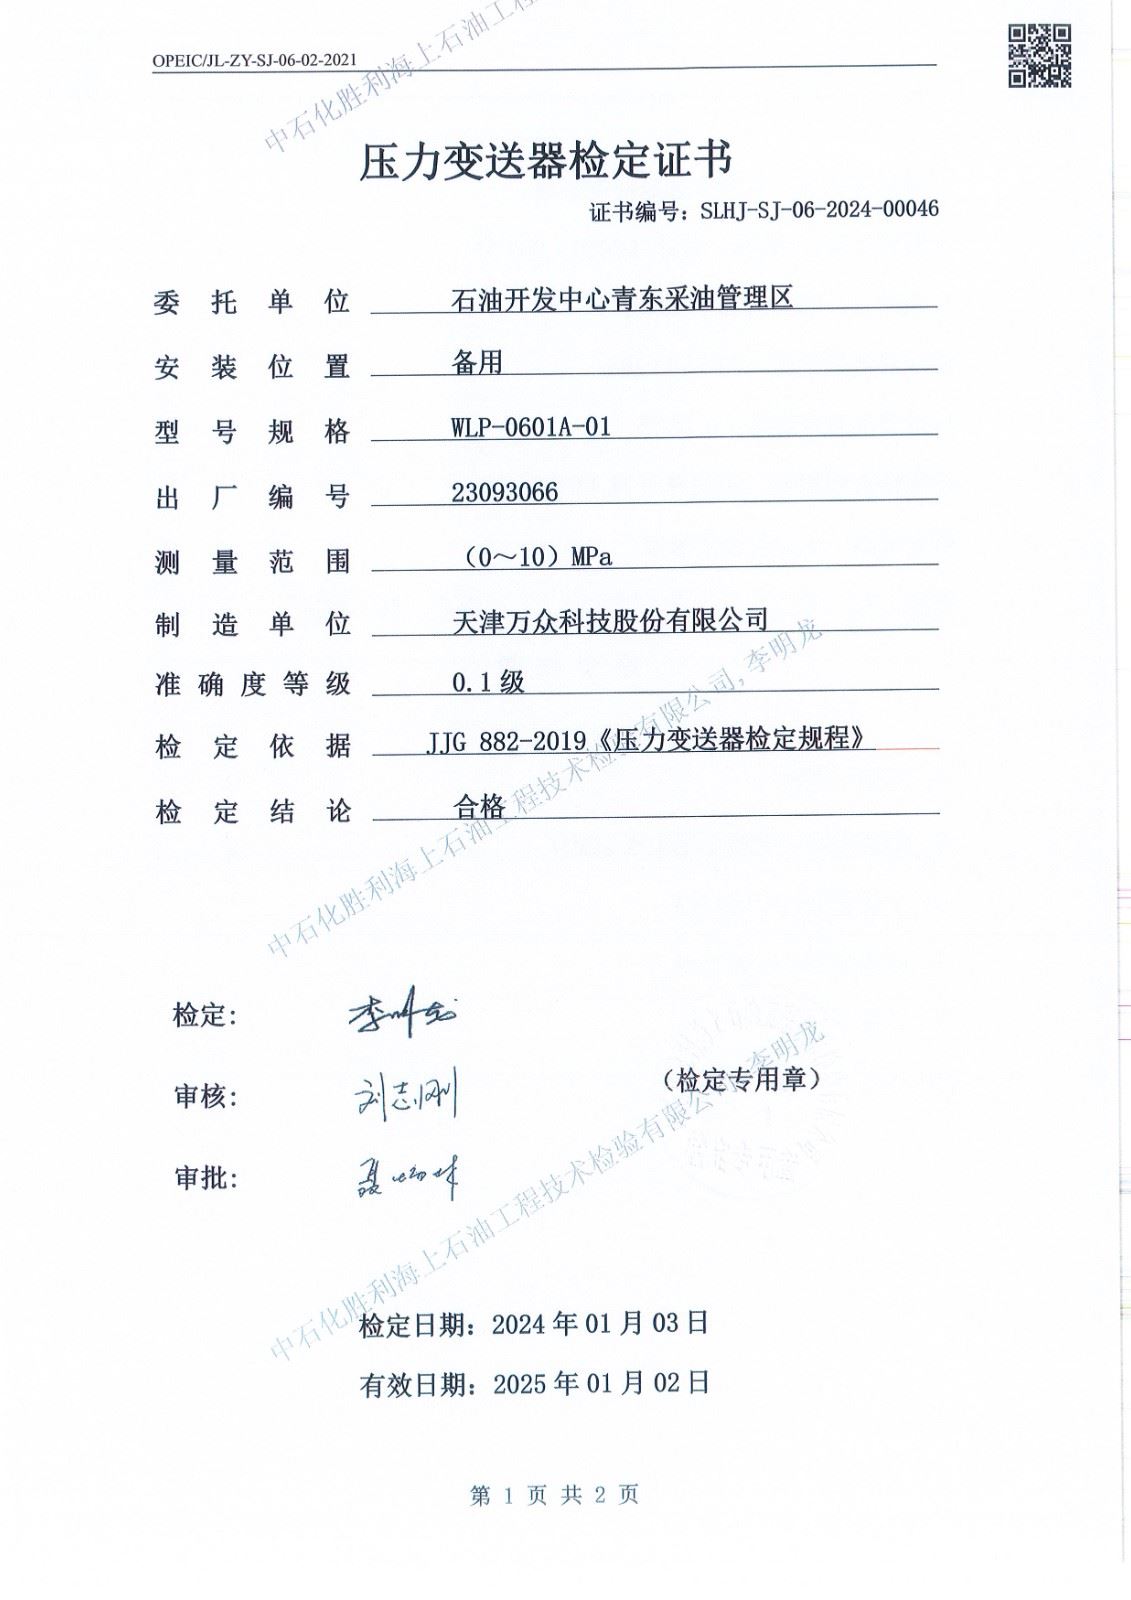 OPEIC/JL-ZY-SJ-06-02-2021
中石化胜利海上石油工程
压力变送器检定证书
证书编号：SLHJ-SJ-06-2024-00046
委托单位 石油开发中心青东采油管理区
安装位置 备用
型号规格 WLP-0601A-01
出厂编号 23093066
测量范围 （0～10）MPa
制造单位 天津万众科技股份有限公司
准确度等级 0.1级
检定依据 JJG 882-2019《压力变送器检定规程》
检定结论 合格
中石化胜利海上石油工程技术检验有限公司, 李明龙
检定： 李明龙
审核： 刘志刚
（检定专用章）
审批：
中石化胜利海上石油工程技术检验有限公司, 李明龙
检定日期：2024年01月03日
有效日期：2025年01月02日
第 1 页 共 2 页